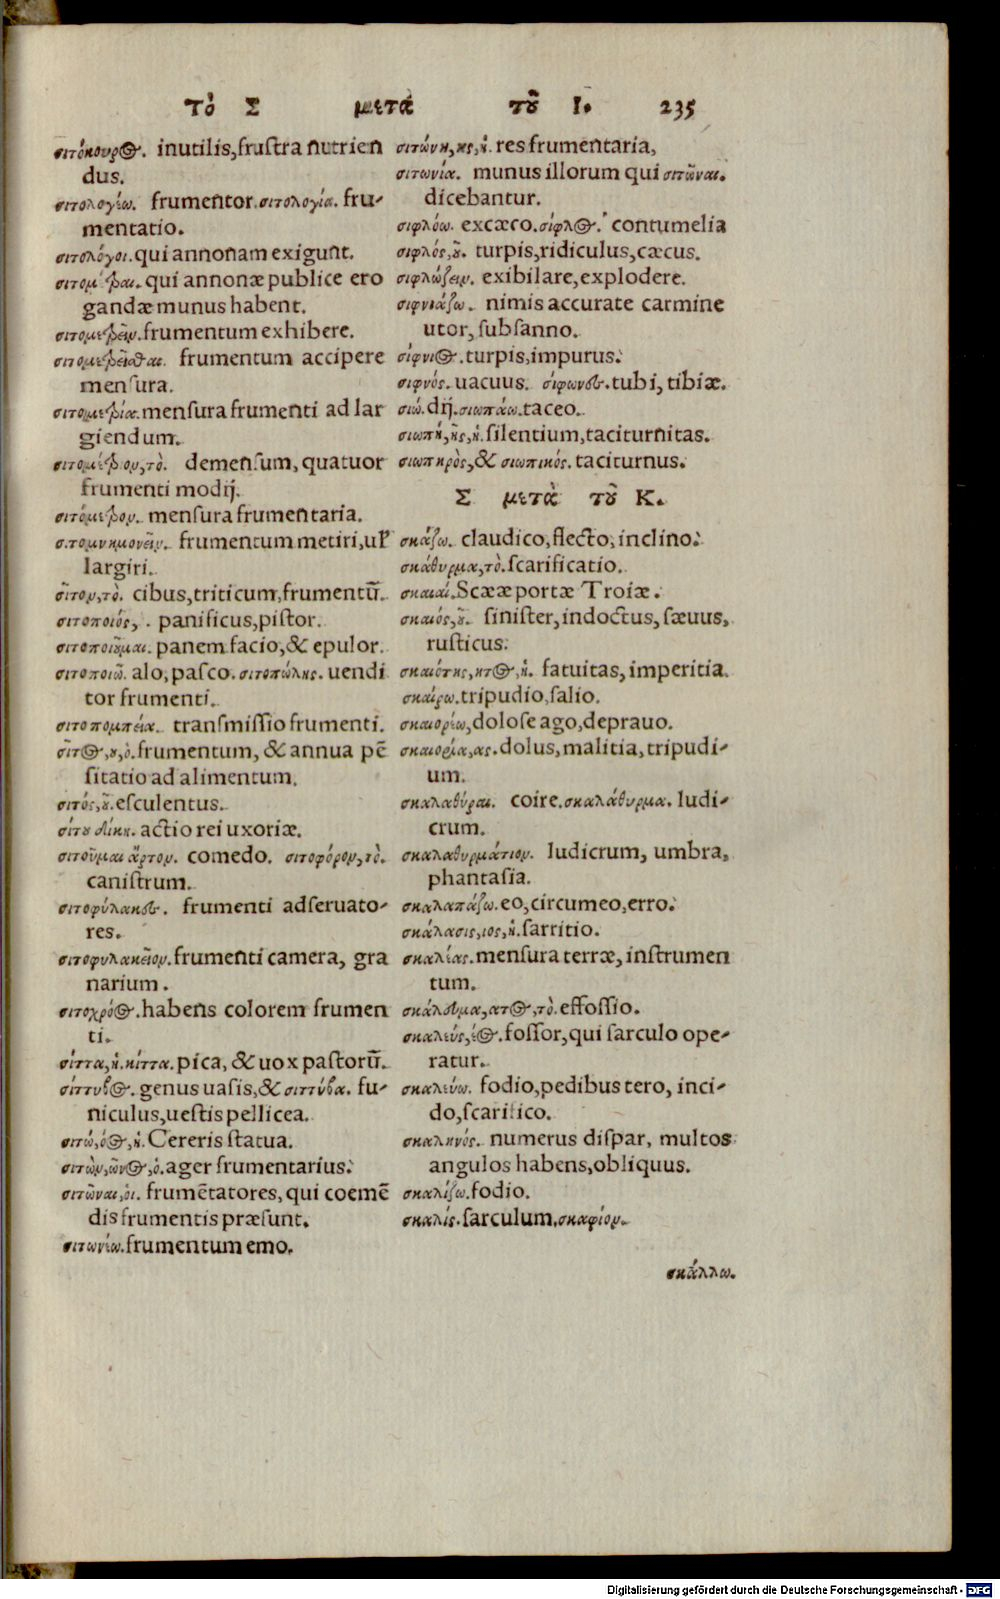 τὸ Σ μετὰ τοῦ Ι. 235
σιτόκουρος. inutilis, frustra nutrien
dus.
σιτολογέω. frumentor. σιτολογία. fru-
mentatio.
σιτολόγοι. qui annonam exigunt.
σιτομέτραι. qui annonæ publice ero
gandæ munus habent.
σιτομετρεῖν. frumentum exhibere.
σιτομετρεῖσθαι. frumentum accipere
mensura.
σιτομετρία. mensura frumenti ad lar
giendum.
σιτομέτριον, τὸ. demensum, quatuor
frumenti modij.
σιτόμετρον. mensura frumentaria.
σιτομνημονεῖν. frumentum metiri, uľ
largiri.
σῖτον, τὸ. cibus, triticum, frumentū.
σιτοποιός, . panificus, pistor.
σιτοποιοῦμαι. panem facio, & epulor.
σιτοποιῶ. alo, pasco. σιτοπώλης. uendi
tor frumenti.
σιτοπομπεία. transmissio frumenti.
σῖτος, ου, ὁ. frumentum, & annua pē
sitatio ad alimentum.
σιτός, οῦ. esculentus.
σίτου δίκη. actio rei uxoriæ.
σιτοῦμαι ἄρτον. comedo. σιτοφόρον, τὸ.
canistrum.
σιτοφύλακες. frumenti adseruato-
res.
σιτοφυλακεῖον. frumenti camera, gra
narium.
σιτοχρόος. habens colorem frumen
ti.
σίττα, ἡ. κίττα. pica, & uox pastorū.
σίττυβος. genus uasis, & σιττύβα. fu-
niculus, uestis pellicea.
σιτώ, όος, ἡ. Cereris statua.
σιτὼν, ῶνος, ὁ. ager frumentarius.
σιτῶναι, οἱ. frumētatores, qui coemē
dis frumentis præsunt.
σιτωνέω. frumentum emo.
σιτώνη, ης, ἡ. res frumentaria,
σιτωνία. munus illorum qui σιτῶναι.
dicebantur.
σιφλόω. excæco. σίφλος. contumelia
σιφλός, οῦ. turpis, ridiculus, cæcus.
σιφλώζειν. exibilare, explodere.
σιφνιάζω. nimis accurate carmine
utor, subsanno.
σίφνιος. turpis, impurus.
σιφνός. uacuus. σίφωνες. tubi, tibiæ.
σιώ. dij. σιωπάω. taceo.
σιωπή, ῆς, ἡ. silentium, taciturnitas.
σιωπηρὸς, & σιωπικός. taciturnus.
Σ μετὰ τοῦ Κ.
σκάζω. claudico, flecto, inclino.
σκάθυρμα, τὸ. scarificatio.
σκαιαί. Scææ portæ Troiæ.
σκαιός, οῦ. sinister, indoctus, sæuus,
rusticus.
σκαιότης, ητος, ἡ. fatuitas, imperitia.
σκαίρω. tripudio, salio.
σκαιορέω, dolose ago, deprauo.
σκαιορία, ας. dolus, malitia, tripudi-
um.
σκαλαθύραι. coire. σκαλάθυρμα. ludi-
crum.
σκαλαθυρμάτιον. ludicrum, umbra,
phantasia.
σκαλαπάζω. eo, circumeo, erro.
σκάλασις, ιος, ἡ. sarritio.
σκαλέας. mensura terræ, instrumen
tum.
σκάλευμα, ατος, τὸ. effossio.
σκαλεύς, έος. fossor, qui sarculo ope-
ratur.
σκαλεύω. fodio, pedibus tero, inci-
do, scarifico.
σκαληνός. numerus dispar, multos
angulos habens, obliquus.
σκαλίζω. fodio.
σκαλίς. sarculum. σκαφίον.
σκάλλω.
Digitalisierung gefördert durch die Deutsche Forschungsgemeinschaft - DFG